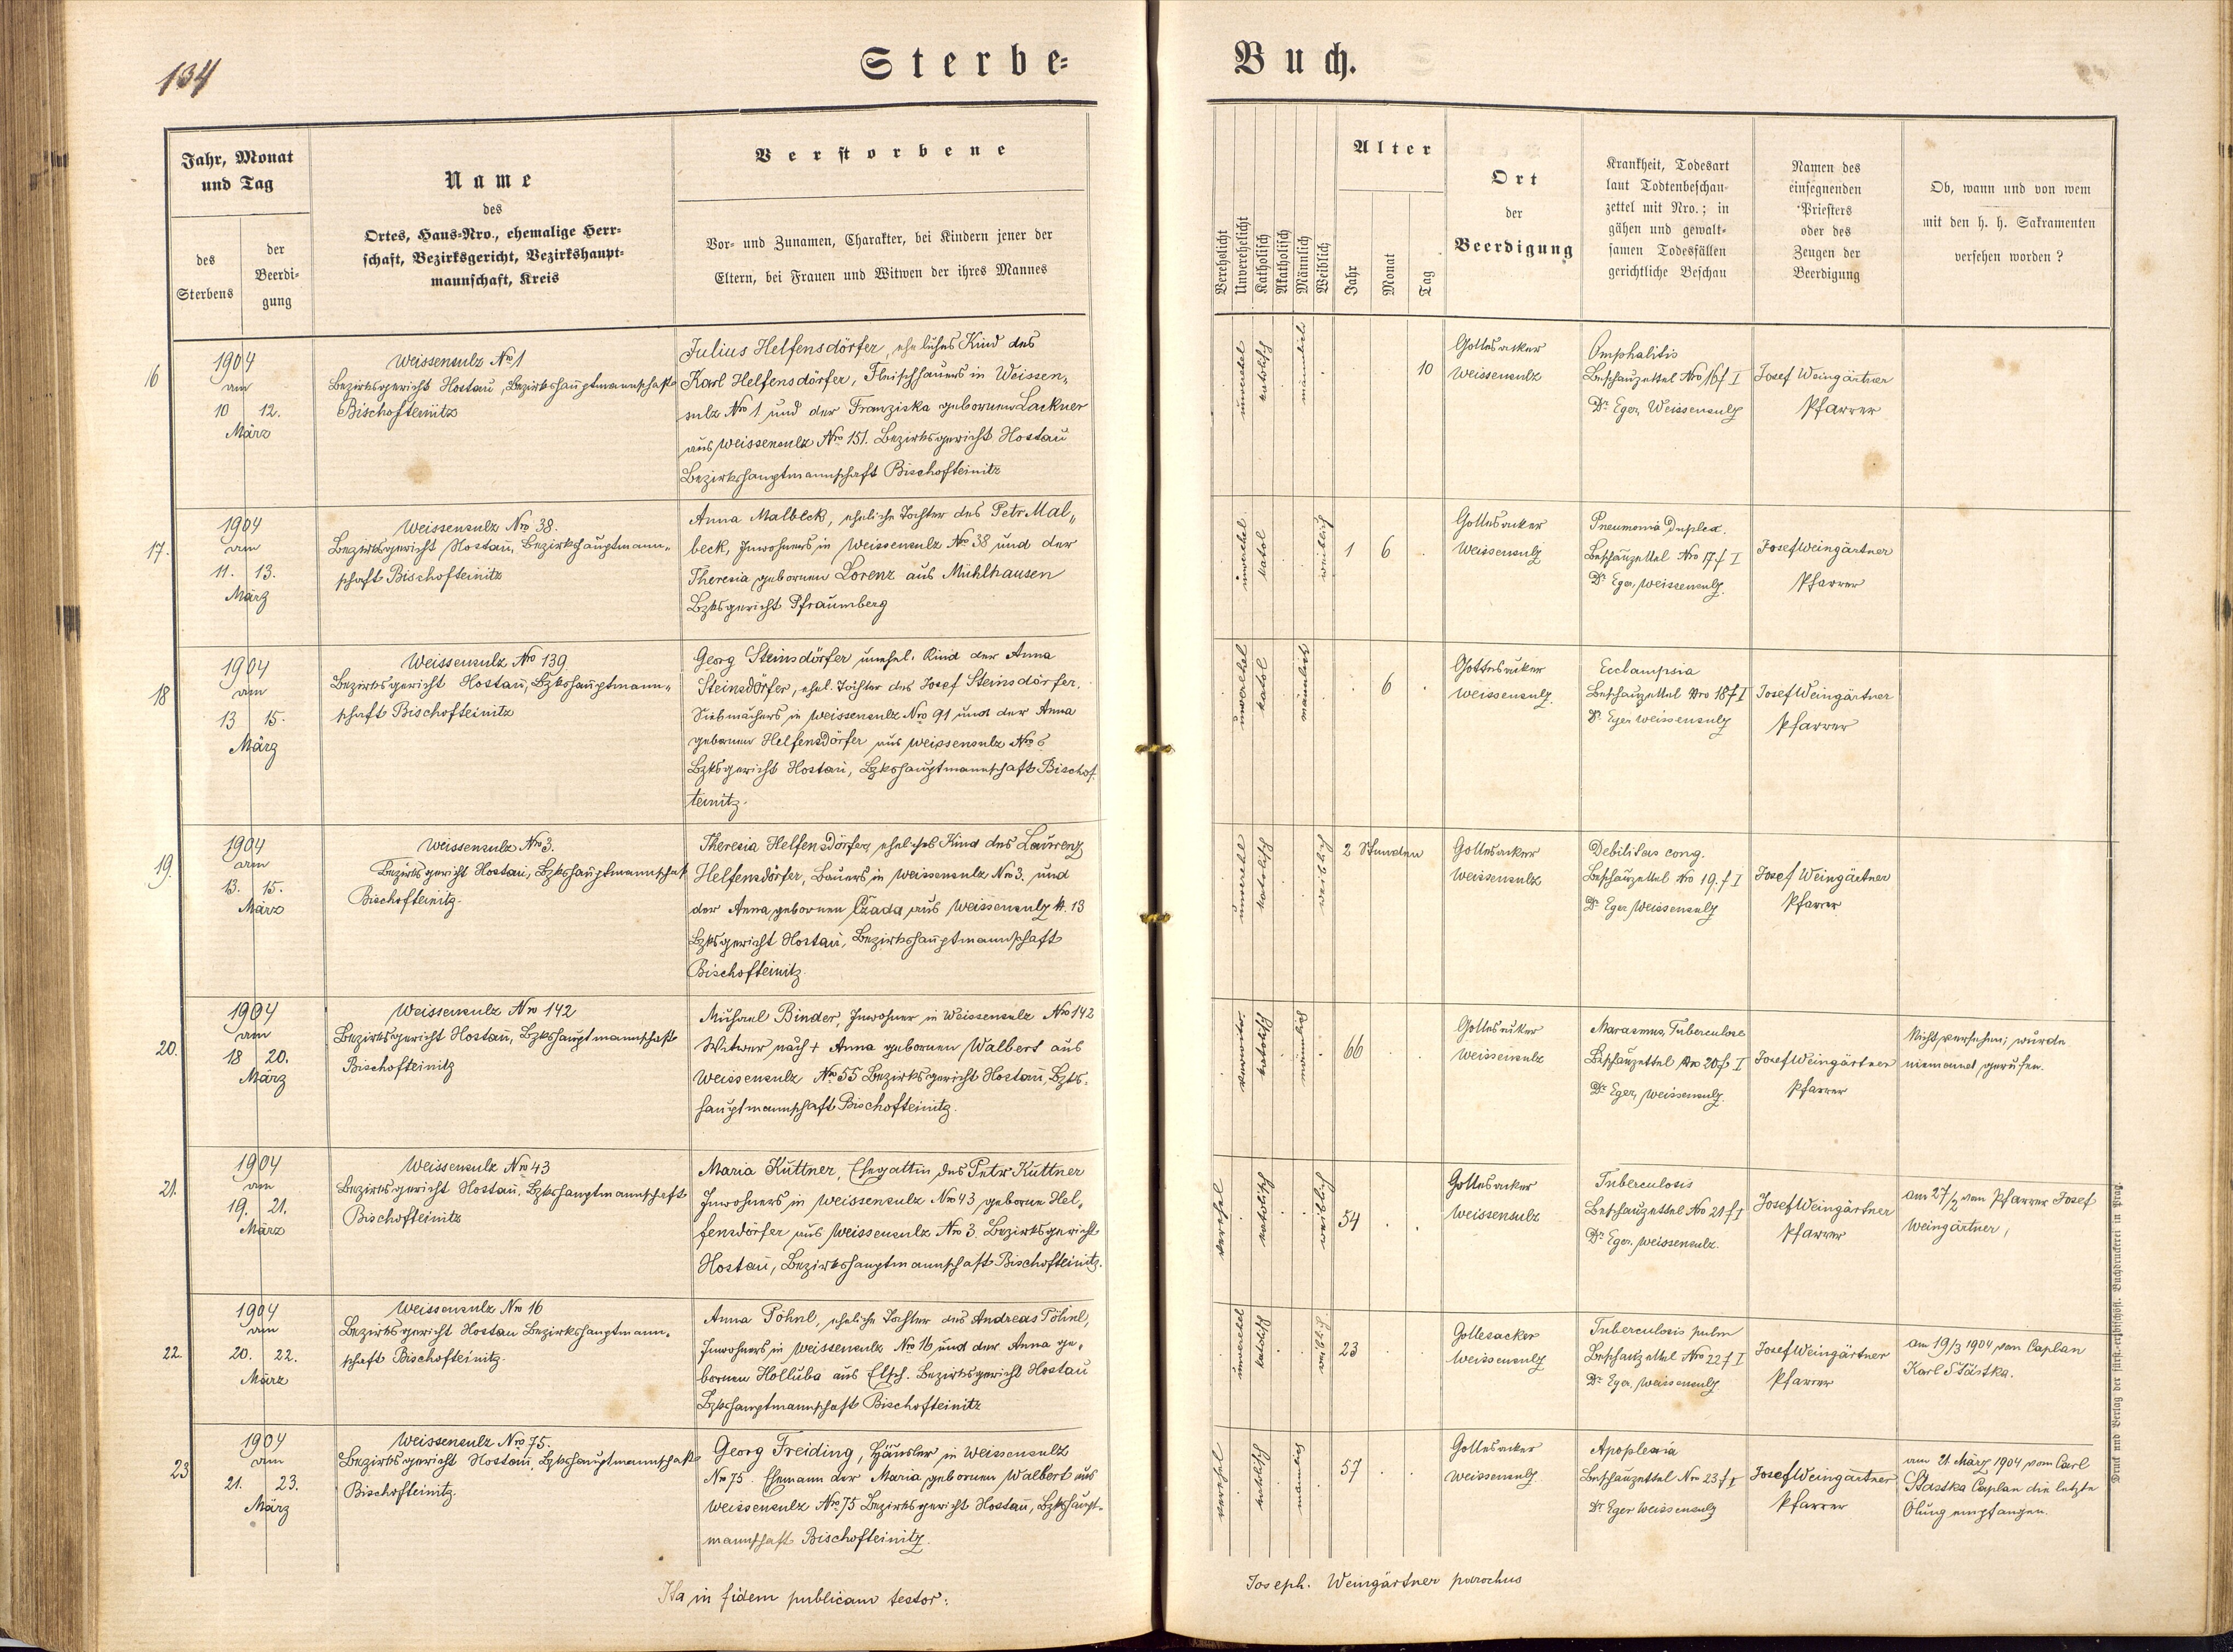 134
Sterbe-
Buch.
Jahr, Monat
und Tag
des
Sterbens
der
Beerdi-
gung
Name
des
Ortes, Haus-Nro., ehemalige Herr-
schaft, Bezirksgericht, Bezirkshaupt-
mannschaft, Kreis
Verstorbene
Vor- und Zunamen, Charakter, bei Kindern jener der
Eltern, bei Frauen und Witwen der ihres Mannes
Verehelicht
Unverehelicht
Katholisch
Akatholisch
Männlich
Weiblich
Alter
Jahr
Monat
Tag
Ort
der
Beerdigung
Krankheit, Todesart
laut Todtenbeschau-
zettel mit Nro.; in
gähen und gewalt-
samen Todesfällen
gerichtliche Beschau
Namen des
einsegnenden
Priesters
oder des
Zeugen der
Beerdigung
Ob, wann und von wem
mit den h. h. Sakramenten
versehen worden?
16
1904
am
10 12.
März
Weissensulz Nro 1
Bezirksgericht Hostau, Bezirkshauptmannschaft
Bischofteinitz
Julius Helfensdörfer, eheliches Kind des
Karl Helfensdörfer, Fleischhauers in Weissen„
sulz Nro 1 und der Franziska gebornen Lackner
aus Weissensulz Nro 151. Bezirksgericht Hostau
Bezirkshauptmannschaft Bischofteinitz
unverehel
katolisch
männlich
10
Gottesacker
Weissensulz
Omphalitis
Beschauzettel Nro 16 f I
Dr Eger, Weissensulz
Josef Weingärtner
Pfarrer
17.
1904
am
11. 13.
März
Weissensulz Nro 38.
Bezirksgericht Hostau, Bezirkshauptmann„
schaft Bischofteinitz
Anna Malbeck, eheliche Tochter des Petr Mal„
beck, Inwohners in Weissensulz Nro 38 und der
Theresia gebornen Lorenz aus Mühlhausen
Bzksgericht Pfraumberg
unverehel
katol
weiblich
1 6
Gottesacker
Weissensulz
Pneumonia Duplex.
Beschauzettel Nro 17 f I
Dr Eger, Weissensulz.
Josef Weingärtner
Pfarrer
18
1904
am
13 15.
März
Weissensulz Nro 139
Bezirksgericht Hostau, Bzkshauptmann„
schaft Bischofteinitz
Georg Steinsdörfer unehel. Kind der Anna
Steinsdörfer, ehel. Tochter des Josef Steinsdörfer,
Siebmachers in Weissensulz Nro 91 und der Anna
gebornen Helfensdörfer aus Weissensulz Nro 6
Bzksgericht Hostau, Bzkshauptmannschaft Bischof
teinitz.
unverehel
katol
männlich
6
Gottesacker
Weissensulz.
Ecclampsia
Beschauzettel Nro 18 f I
Dr Eger Weissensulz
Josef Weingärtner
Pfarrer
19.
1904
am
13. 15.
März
Weissensulz Nro 3.
Bezirksgericht Hostau, Bzkshauptmannschaft
Bischofteinitz.
Theresia Helfensdörfer, eheliches Kind des Laurenz
Helfensdörfer, Bauers in Weissensulz Nro 3. und
der Anna gebornen Czada aus Weissensulz N. 13
Bzksgericht Hostau, Bezirkshauptmannschaft
Bischofteinitz
unverehel
katolisch
weiblich
2 Stunden
Gottesacker
Weissensulz
Debilitas cong.
Beschauzettel Nro 19. f I
Dr Eger Weissensulz
Josef Weingärtner
Pfarrer
20.
1904
am
18 20.
März
Weissensulz Nro 142
Bezirksgericht Hostau, Bzkshauptmannschaft
Bischofteinitz
Michael Binder, Inwohner in Weissensulz Nro 142
Witwer nach + Anna gebornen Walbert aus
Weissensulz Nro 55 Bezirksgericht Hostau, Bzks.
hauptmannschaft Bischofteinitz.
katolisch
männlich
66
Gottesacker
Weissensulz
Marasmus, Tuberculose
Beschauzettel Nro 20 f I
Dr Eger, Weissensulz.
Josef Weingärtner
Pfarrer
Nicht versehen; wurde
niemand gerufen.
21.
1904
am
19. 21.
März
Weissensulz Nro 43
Bezirksgericht Hostau, Bzkshauptmannschaft
Bischofteinitz
Maria Küttner, Ehegattin des Petr Küttner
Inwohners in Weissensulz Nro 43 geborne Hel„
fensdörfer aus Weissensulz Nro 3. Bezirksgericht
Hostau, Bezirkshauptmannschaft Bischofteinitz.
verehel
katolisch
weiblich
54
Gottesacker
Weissensulz
Tuberculosis
Beschauzettel Nro 21 f I
Dr Eger, Weissensulz.
Josef Weingärtner
Pfarrer
am 27/2 von Pfarrer Josef
Weingärtner,
22.
1904
am
20. 22.
März
Weissensulz Nro 16
Bezirksgericht Hostau Bezirkshauptmann„
schaft Bischofteinitz.
Anna Pöhnl, eheliche Tochter des Andreas Pöhnl,
Inwohners in Weissensulz Nro 16 und der Anna ge„
bornen Holluba aus Elsch. Bezirksgericht Hostau
Bzkshauptmannschaft Bischofteinitz
unverehel
katolisch
weiblich
23
Gottesacker
Weissensulz
Tuberculosis pulm
Beschauzettel Nro 22 f I
Dr Eger, Weissensulz
Josef Weingärtner
Pfarrer
am 19/3 1904 von Caplan
Karl Stástka.
23
1904
am
21. 23.
März
Weissensulz Nro 75.
Bezirksgericht Hostau, Bzkshauptmannschaft
Bischofteinitz.
Georg Freiding, Häusler in Weissensulz
Nro 75. Ehemann der Maria gebornen Walbert aus
Weissensulz Nro 75 Bezirksgericht Hostau, Bzkshaupt„
mannschaft Bischofteinitz.
verehel
katolisch
männlich
57
Gottesacker
Weissensulz
Apoplexia
Beschauzettel Nro 23 f I
Dr Eger Weissensulz
Josef Weingärtner
Pfarrer
am 21. März 1904 vom Carl
Stastka Caplan die letzte
Ölung empfangen.
Ita in fidem publicam testor:
Joseph. Weingärtner parochus
Druck und Verlag der fürst.-erzbischöfl. Buchdruckerei in Prag.